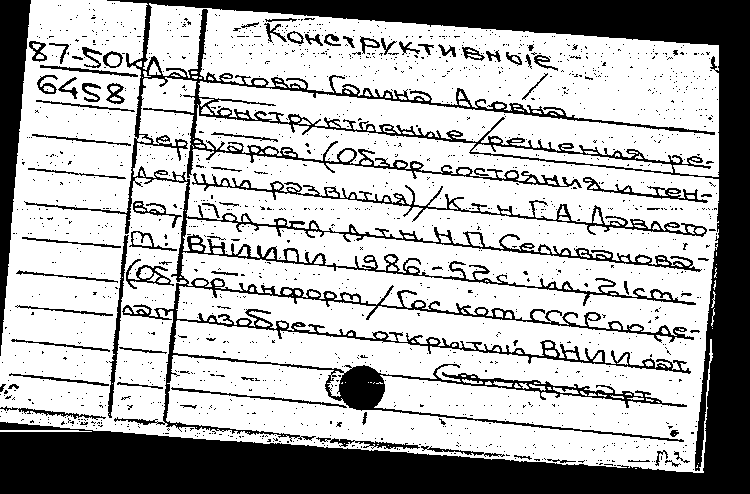 Конструктивные
87-50К Давлетова, Галина Асовна.
6458
Конструктивные решения ре-
зервуаров: (Обзор состояния и тен-
денции развития) / К.т.н. Г.А. Давлето-
ва; Под ред. д.т.н. Н.П. Селиванова. -
М.: ВНИИПИ, 1986. - 52 с.: ил; 21 см. -
(Обзор. информ. / Гос. ком. СССР по де-
лам изобрет. и открытий, ВНИИ пат.
См. след. карт.